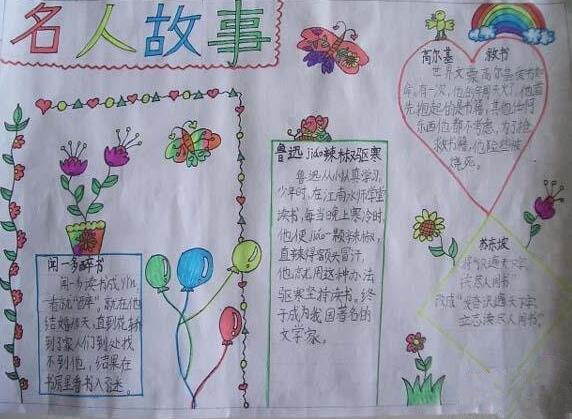 名人故事
高尔基 救书
世界文豪高尔基爱书如
命。有一次,他的房间失火了,他首
先抱起的是书籍,其他任何
东西他都不考虑。为了抢
救书籍,他险些被
烧死。
鲁迅jiáo辣椒驱寒
鲁迅从小认真学习。
少年时,在江南水师学堂
读书,每当晚上寒冷时,
他便jiáo一颗辣椒,
直辣得额头冒汗。
他就用这种办法
驱寒坚持读书。终
于成为我国著名的
文学家。
闻一多醉书
闻一多读书成yǐn,
一看就"醉",就在他
结婚那天,直到花轿
到了家人们到处找
不到他,结果在
书房里看书入了迷。
苏东坡
"识遍天下字,
读尽人间书"
改成"发奋识遍天下字,
立志读尽人间书"。